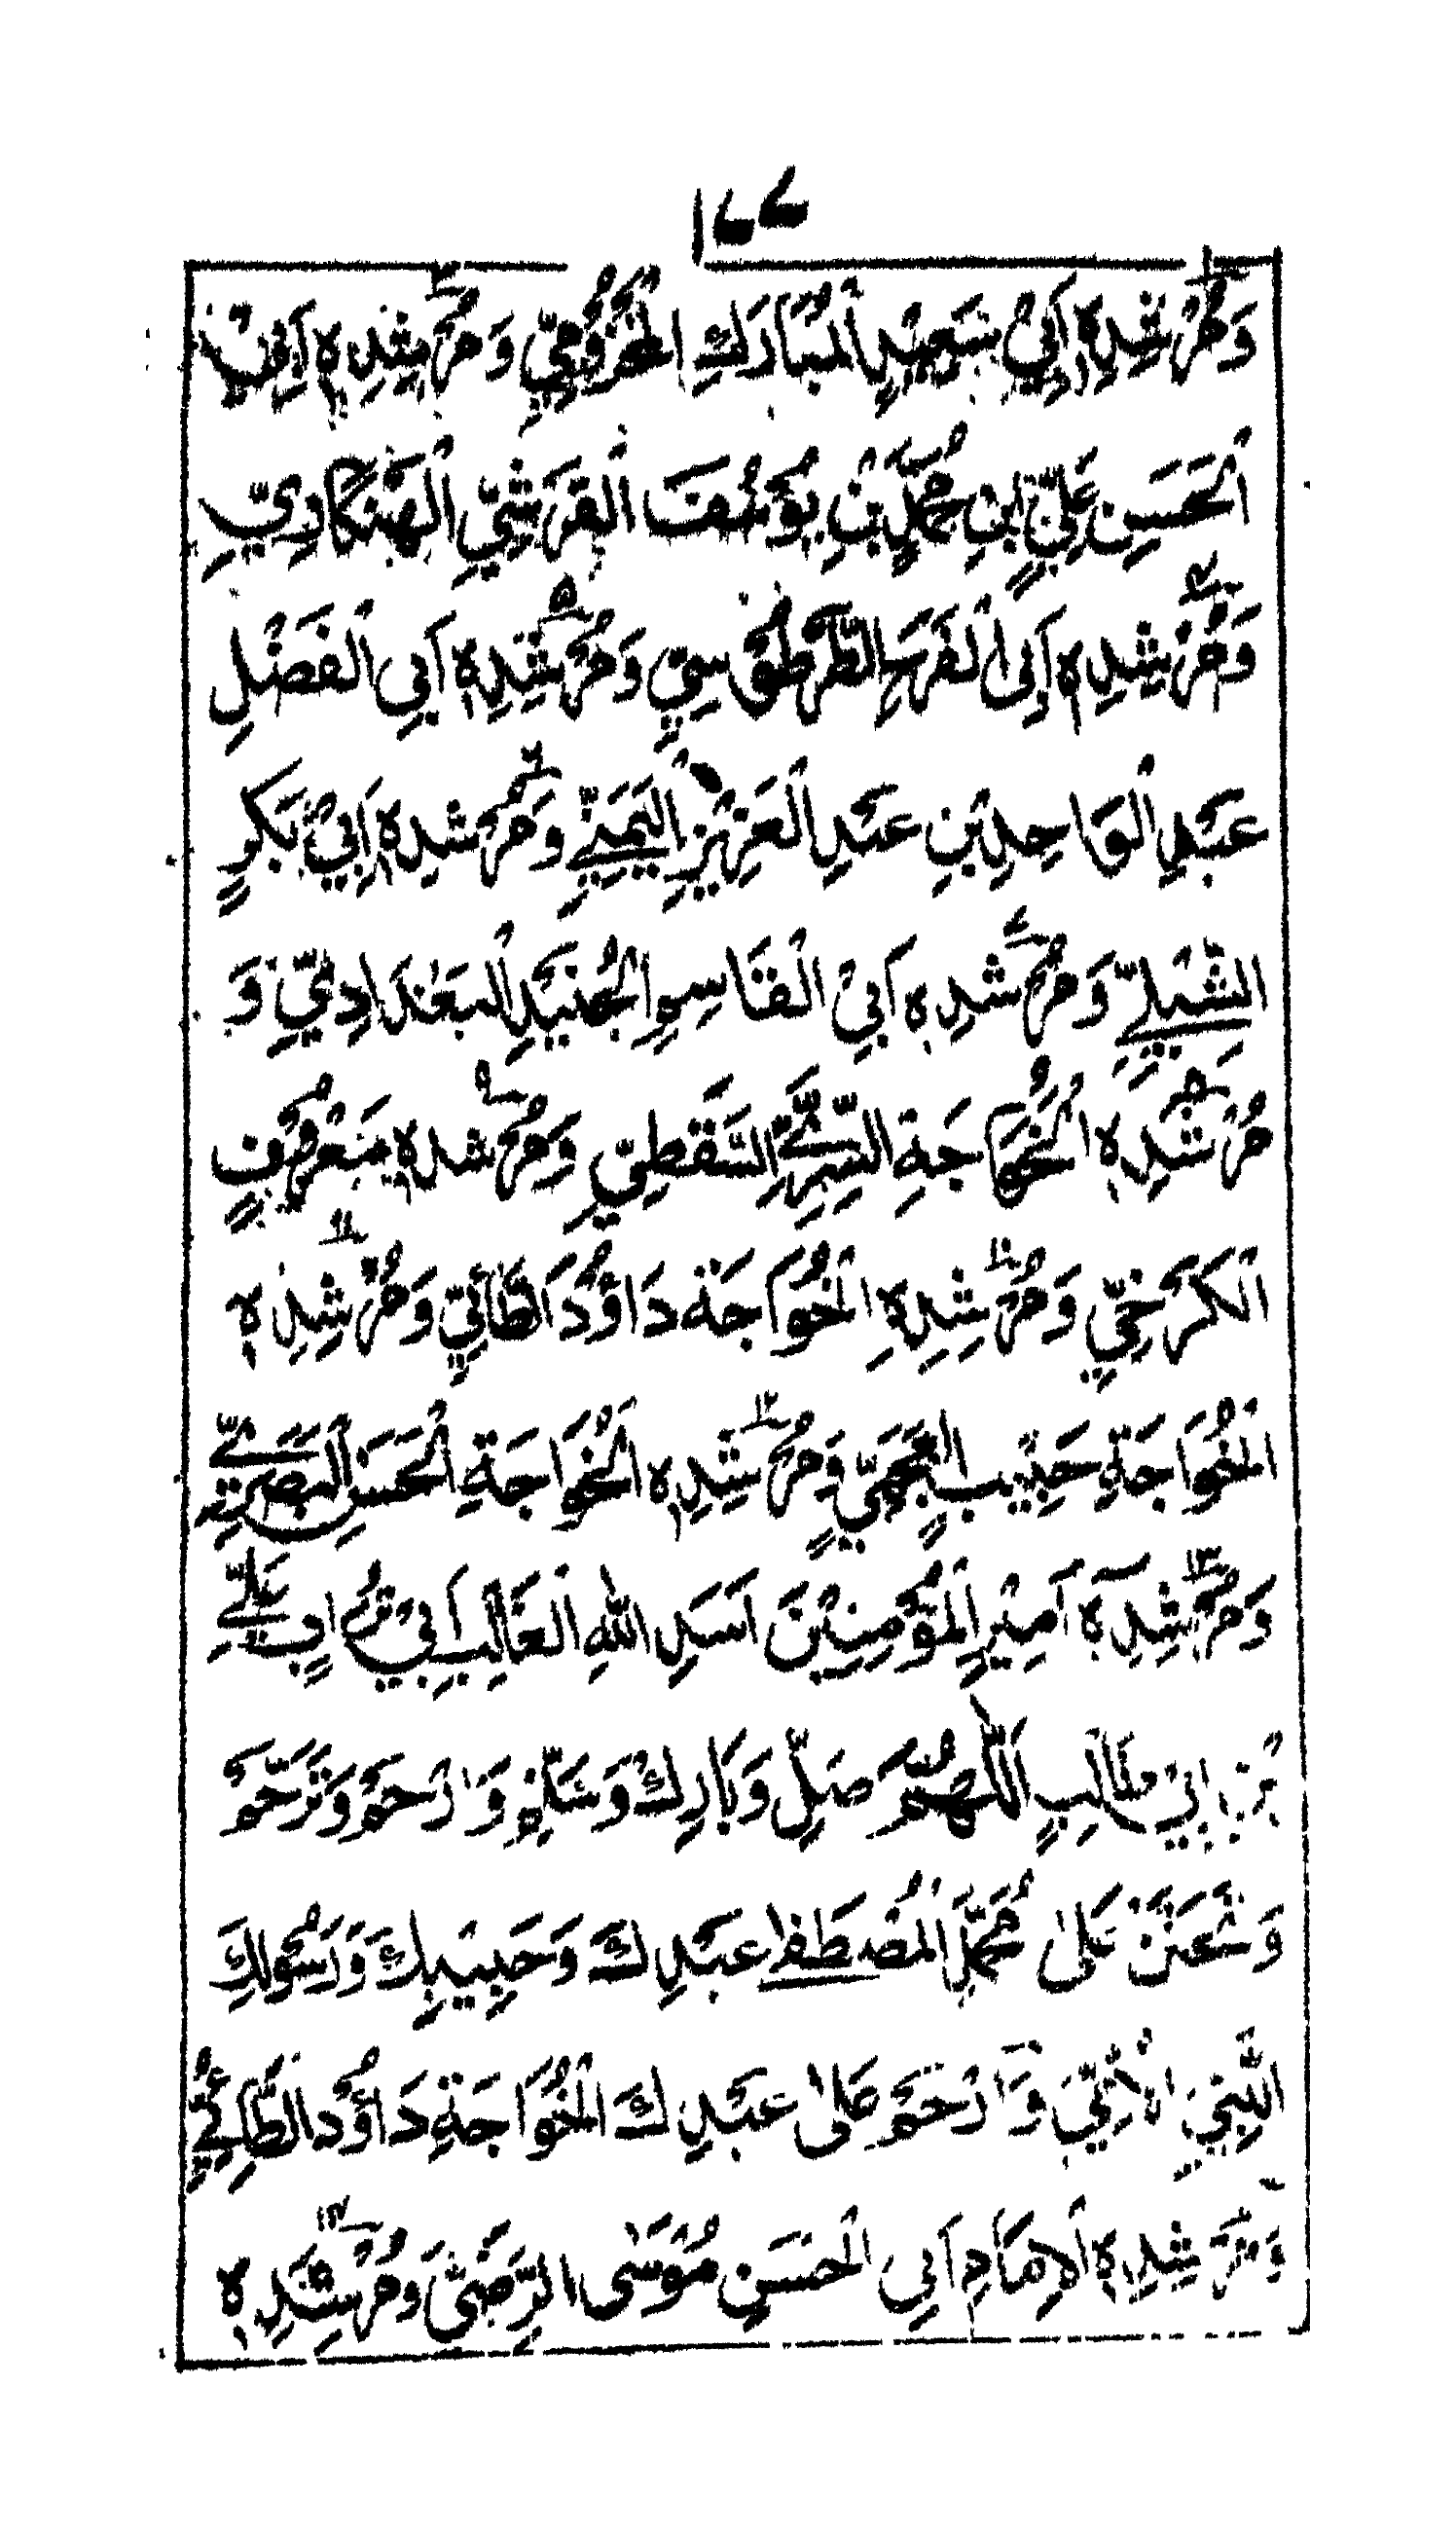 ١٧٧
وَمُرْشِدِهٖ اَبِيْ سَعِيْدِ الْمُبَارَكِ الْمَخْزُوْمِيِّ وَمُرْشِدِهٖ اَبِي
الْحَسَنِ عَلِيِّ ابْنِ مُحَمَّدِ بْنِ يُوْسُفَ الْقَرَشِيِّ الْهَنْكَارِيِّ
وَمُرْشِدِهٖ اَبِى الْفَرَحِ الطَّرْطُوْسِيِّ وَمُرْشِدِهٖ اَبِي الْفَضْلِ
عَبْدِ الْوَاحِدِ بْنِ عَبْدِ الْعَزِيْزِ الْيَمَنِيِّ وَمُرْشِدِهٖ اَبِيْ بَكْرٍ
الشِّبْلِيِّ وَمُرْشِدِهٖ اَبِي الْقَاسِمِ الْجُنَيْدِ الْبَغْدَادِيِّ وَ
مُرْشِدِهٖ الْخَوَاجَةِ السَّرِيِّ السَّقَطِيِّ وَمُرْشِدِهٖ مَعْرُوْفٍ
الْكَرْخِيِّ وَمُرْشِدِهِ الْخَوَاجَةِ دَاوُدَ الطَّائِيِّ وَمُرْشِدِهٖ
الْخَوَاجَةِ حَبِيْبِ الْعَجَمِيِّ وَمُرْشِدِهٖ الْخَوَاجَةِ الْحَسَنِ الْبَصَرِيِّ
وَمُرْشِدِهٖ اَمِيْرِ الْمُؤْمِنِيْنَ اَسَدِ اللهِ الْغَالِبِ اَبِيْ تُرَابٍ عَلِيِّ
بْنِ اَبِيْ طَالِبٍ اَللّٰهُمَّ صَلِّ وَبَارِكْ وَسَلِّمْ وَارْحَمْ وَتَرَحَّمْ
وَتَحَنَّنْ عَلٰى مُحَمَّدِ الْمُصْطَفٰى عَبْدِكَ وَحَبِيْبِكَ وَرَسُوْلِكَ
النَّبِيِّ الْاُمِّيِّ وَارْحَمْ عَلٰى عَبْدِكَ الْخَوَاجَةِ دَاوُدَ الطَّائِيِّ
وَمُرْشِدِهٖ الْاِمَامِ اَبِي الْحَسَنِ مُوْسَى الرِّضٰى وَمُرْشِدِهٖ